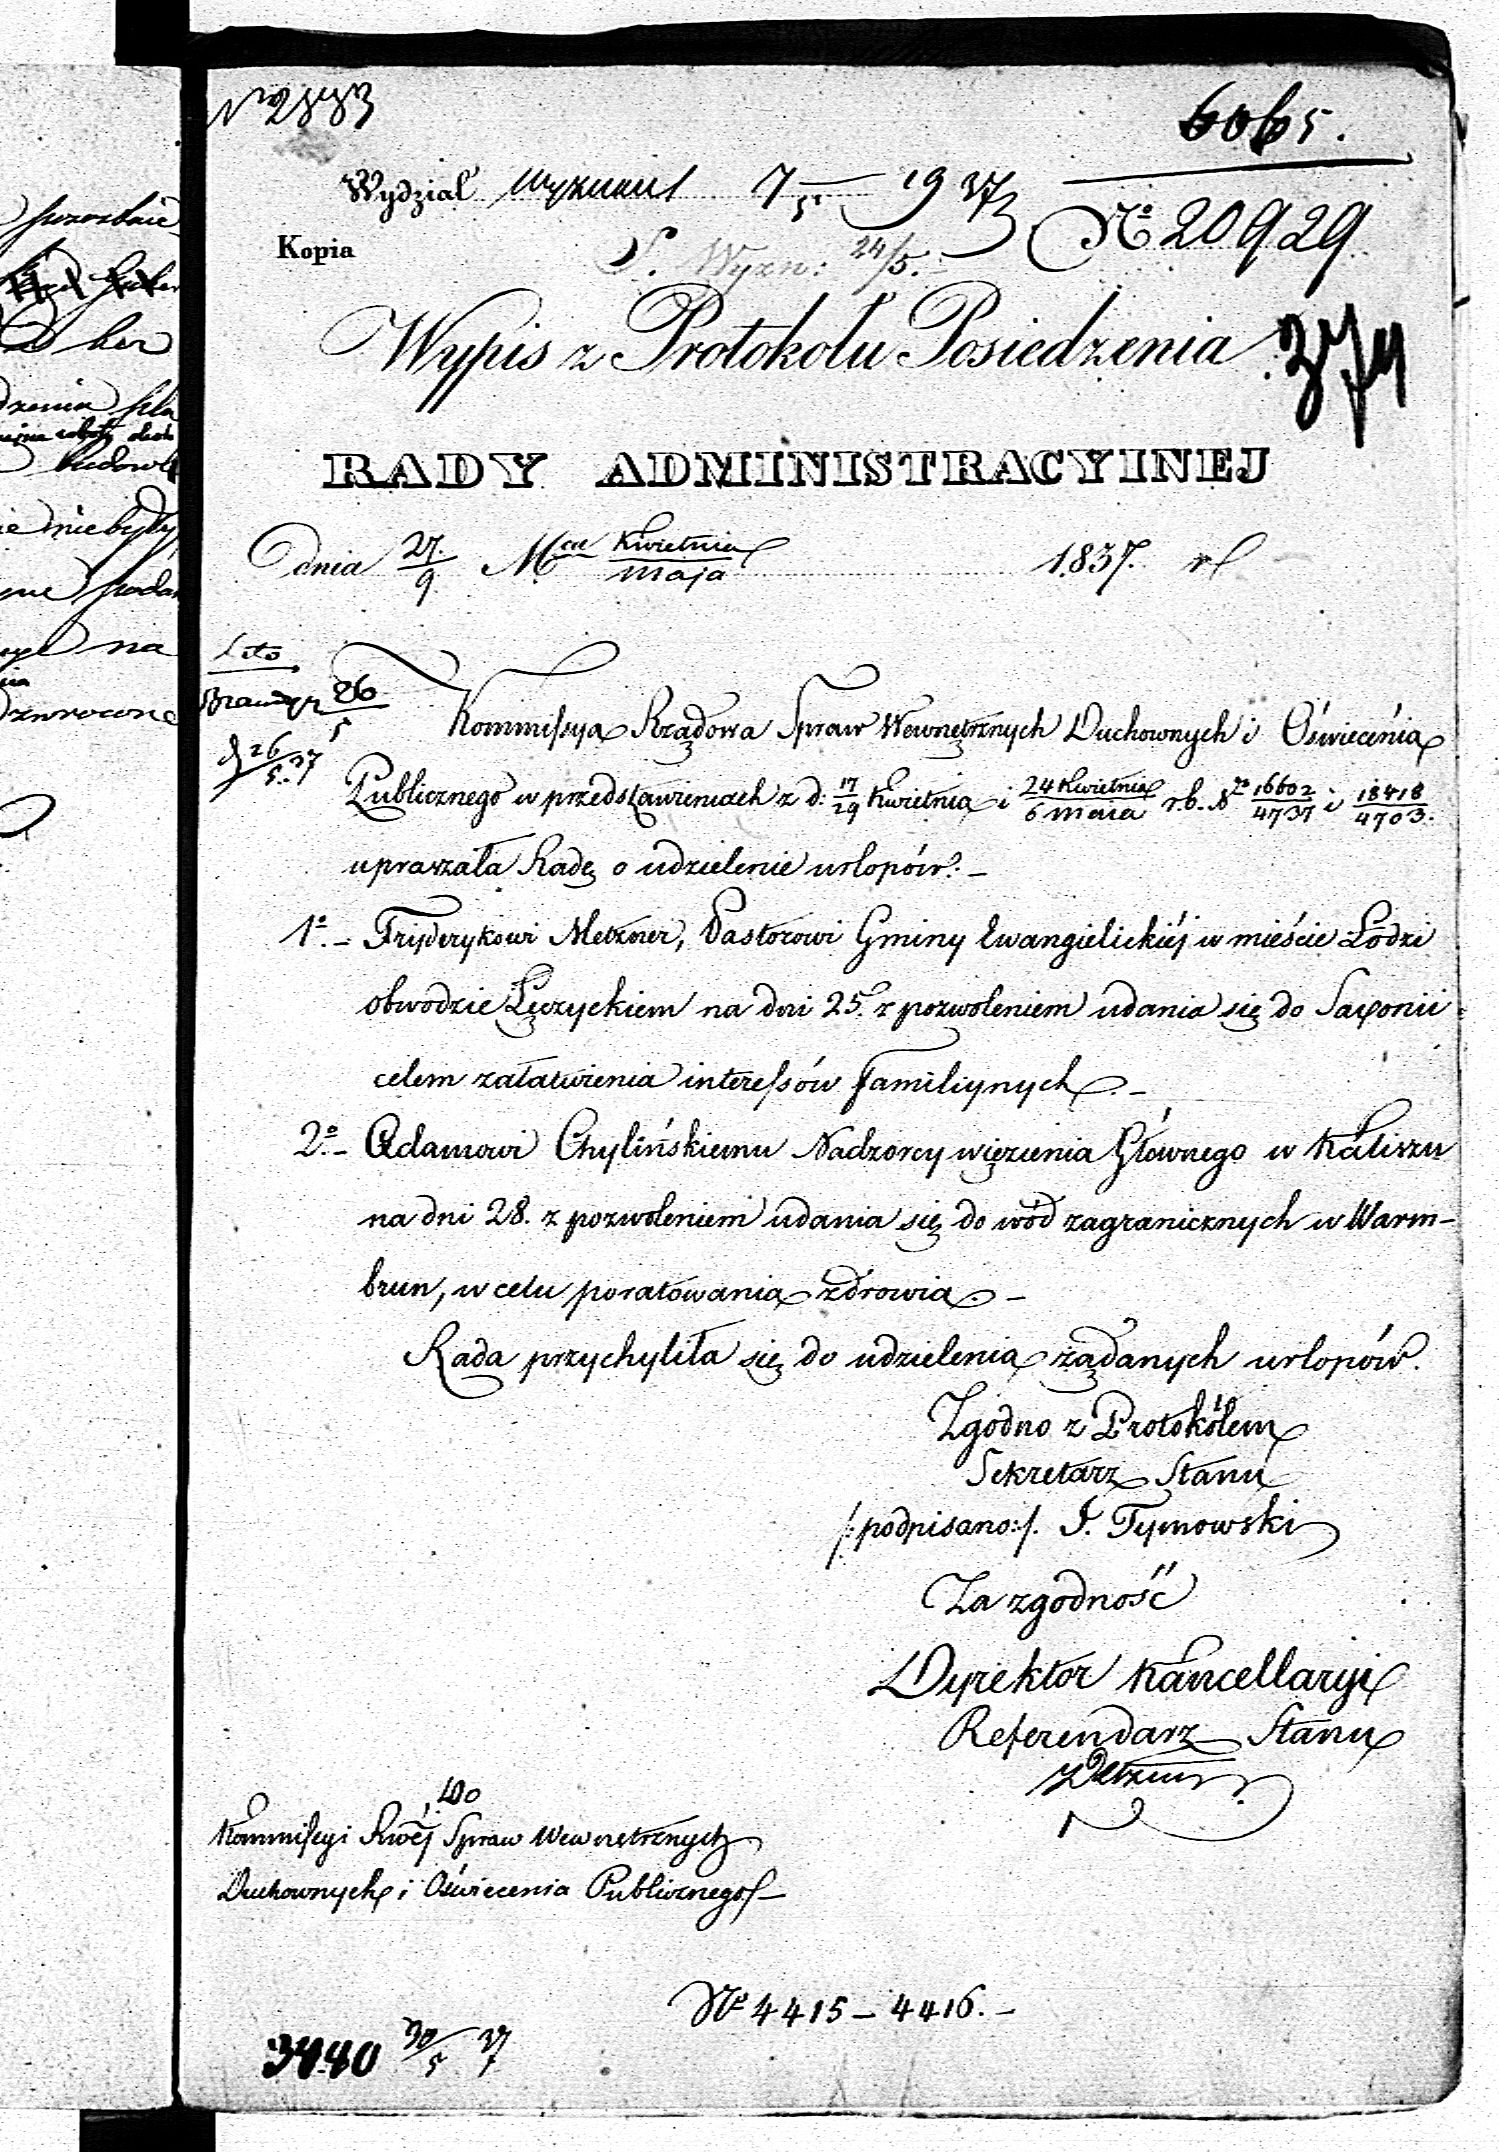 6065.
Wydział Wyznań
No 20929
Kopia
S. Wyzn: 24/5.
Wypis z Protokołu Posiedzenia
RADY ADMINISTRACYINEJ
Dnia 27./9 Mca Kwietnia/Maja 1837. r
26/5
26/5 37
Kommissya Rządowa Spraw Wewnętrznych Duchownych i Oświecenia
Publicznego w przedstawieniach z d: 17/29 Kwietnia i 24 Kwietnia/6 Maia r.b. No 16602/4737 i 18418/4703.
upraszała Radę o udzielenie urlopów:-
1o.- Fryderykowi Metzner, Pastorowi Gminy Ewangielickiéj w mieście Łodzi
obwodzie Łęczyckiem na dni 25. z pozwoleniem udania się do Saxonii
celem załatwienia interessów familiynych.-
2o.- Adamowi Chylińskiemu Nadzorcy więzienia Głównego w Kaliszu
na dni 28. z pozwoleniem udania się do wód zagranicznych w Warm-
brun, w celu poratowania zdrowia.-
Rada przychyliła się do udzielenia żądanych urlopów.
Zgodno z Protokółem
Sekretarz Stanu
/:podpisano:/. J. Tymowski
Za zgodność
Dyrektor Kancellaryi
Referendarz Stanu
Do
Kommissyi Rwéj Spraw Wewnętrznych
Duchownych i Oświecenia Publicznego
No 4415 - 4416.-
3440 30/5 37